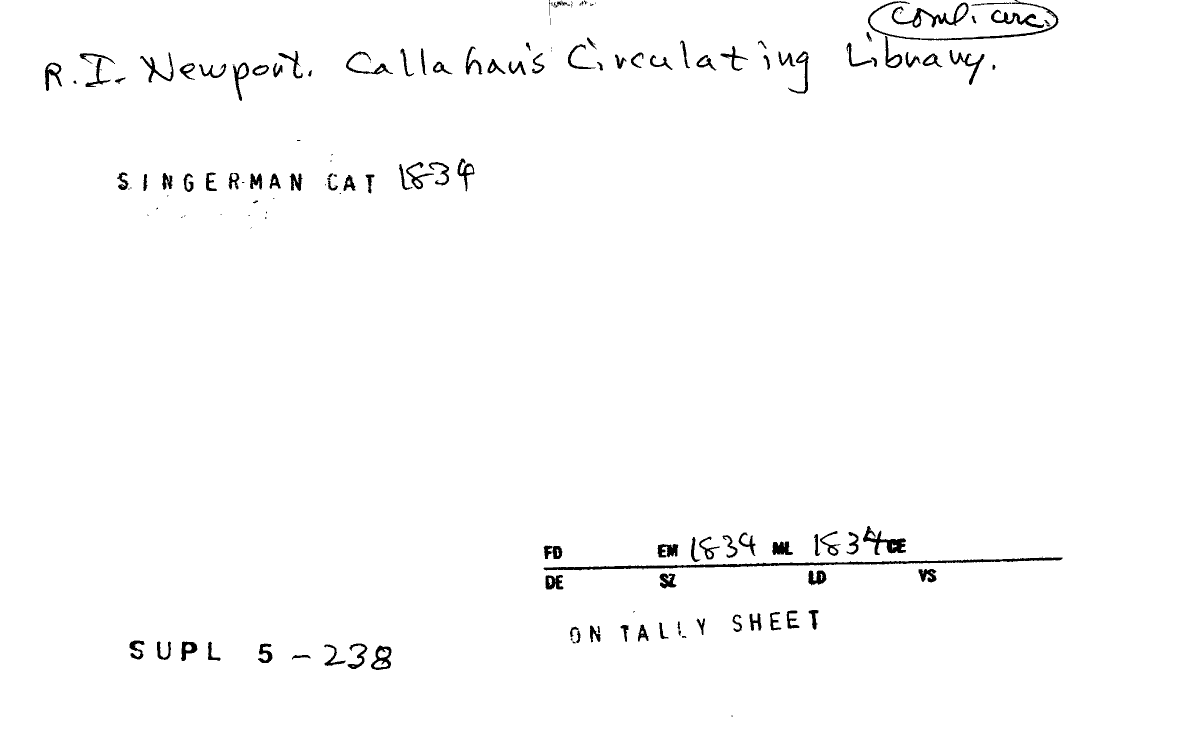 Comp. circ.
R.I. Newport. Callahan's Circulating Library.
SINGERMAN CAT 1834
FD EM 1834 ML 1834 CE
DE SZ LD VS
ON TALLY SHEET
SUPL 5 - 238